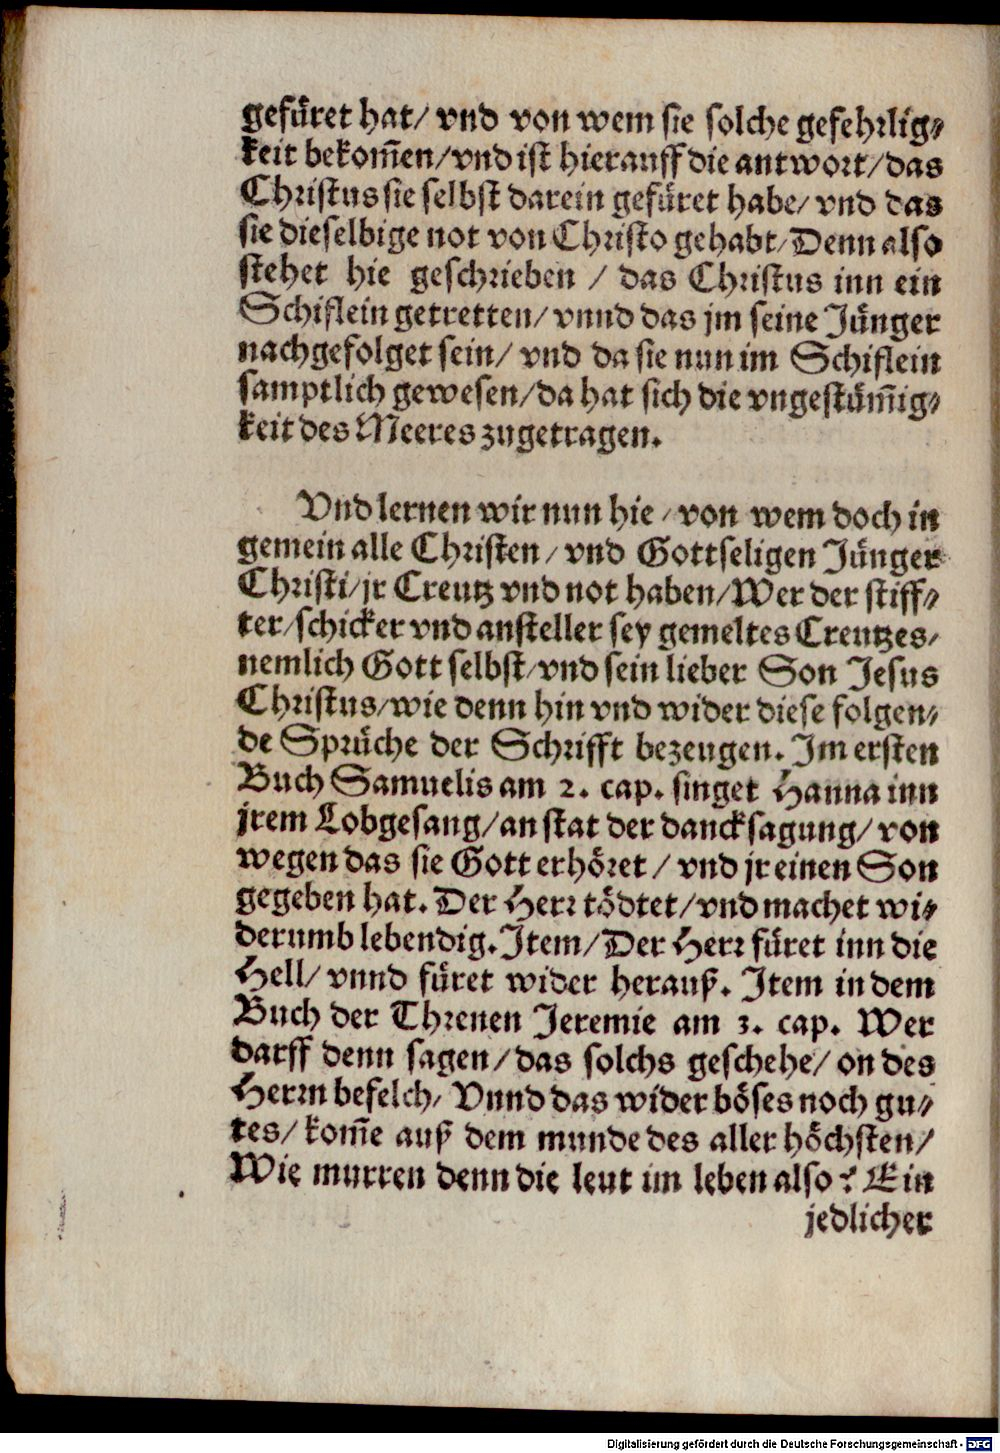 gefüret hat/ vnd von wem sie solche gefehrlig⸗
keit bekom̃en/vnd ist hierauff die antwort/das
Christus sie selbst darein gefüret habe/ vnd das
sie dieselbige not von Christo gehabt/Denn also
stehet hie geschrieben / das Christus inn ein
Schiflein getretten/ vnnd das jm seine Jünger
nachgefolget sein/ vnd da sie nun im Schiflein
samptlich gewesen/da hat sich die vngestüm̃ig⸗
keit des Meeres zugetragen.
Vnd lernen wir nun hie/von wem doch in
gemein alle Christen/ vnd Gottseligen Jünger
Christi/jr Creutz vnd not haben/Wer der stiff⸗
ter/schicker vnd ansteller sey gemeltes Creutzes/
nemlich Gott selbst/vnd sein lieber Son Jesus
Christus/wie denn hin vnd wider diese folgen⸗
de Sprüche der Schrifft bezeugen. Im ersten
Buch Samuelis am 2. cap. singet Hanna inn
jrem Lobgesang/an stat der dancksagung/ von
wegen das sie Gott erhöret / vnd jr einen Son
gegeben hat. Der Herr tödtet/vnd machet wi⸗
derumb lebendig. Item/Der Herr füret inn die
Hell/ vnnd füret wider herauß. Item in dem
Buch der Threnen Jeremie am 3. cap. Wer
darff denn sagen/das solchs geschehe/ on des
Herrn befelch/ Vnnd das wider böses noch gu⸗
tes/ kom̃e auß dem munde des aller höchsten/
Wie murren denn die leut im leben also? Ein
jedlicher
Digitalisierung gefördert durch die Deutsche Forschungsgemeinschaft - DFG